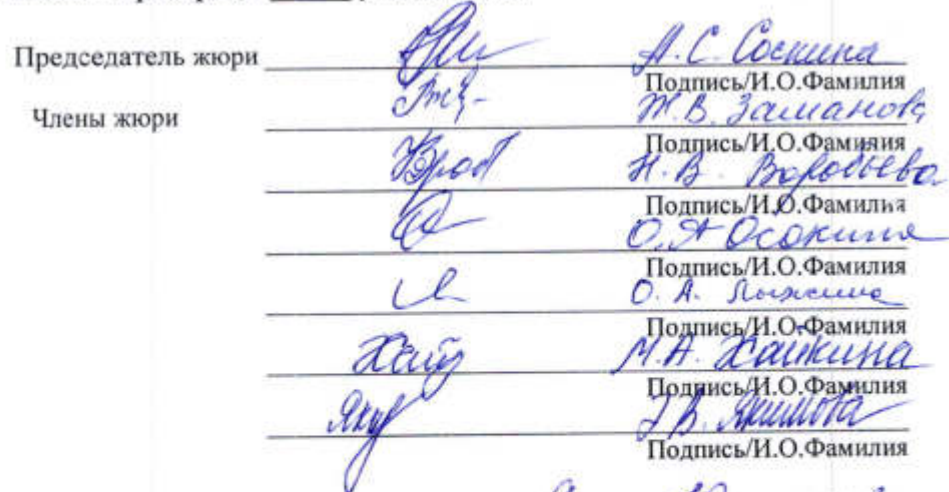 Председатель жюри А.С. Соскина
Подпись/И.О.Фамилия
Члены жюри Ж.В. Заманова
Подпись/И.О.Фамилия
Н.В. Воробьева
Подпись/И.О.Фамилия
О.А Осокина
Подпись/И.О.Фамилия
О.А. Лыжина
Подпись/И.О.Фамилия
М.А. Хайкина
Подпись/И.О.Фамилия
В. Якимова
Подпись/И.О.Фамилия